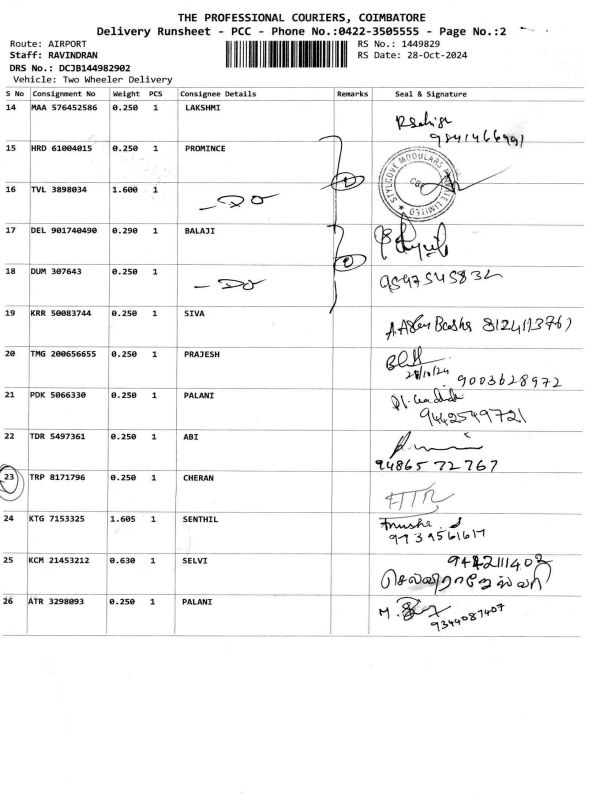 THE PROFESSIONAL COURIERS, COIMBATORE
Delivery Runsheet - PCC - Phone No.:0422-3505555 - Page No.:2
Route: AIRPORT RS No.: 1449829
Staff: RAVINDRAN RS Date: 28-Oct-2024
DRS No.: DCJB144982902
Vehicle: Two Wheeler Delivery
S No Consignment No Weight PCS Consignee Details Remarks Seal & Signature
14 MAA 576452586 0.250 1 LAKSHMI
9841466991
15 HRD 61004015 0.250 1 PROMINCE
STYLCOVE MODULARS LIMITED
16 TVL 3898034 1.600 1 - DO
17 DEL 901740490 0.290 1 BALAJI
18 DUM 307643 0.250 1 - DO 9597545832
19 KRR 50083744 0.250 1 SIVA
20 TMG 200656655 0.250 1 PRAJESH
28/10/24
9003628972
21 PDK 5066330 0.250 1 PALANI
9442549721
22 TDR 5497361 0.250 1 ABI
94865 72767
23 TRP 8171796 0.250 1 CHERAN
24 KTG 7153325 1.605 1 SENTHIL
25 KCM 21453212 0.630 1 SELVI
26 ATR 3298093 0.250 1 PALANI
9344087407